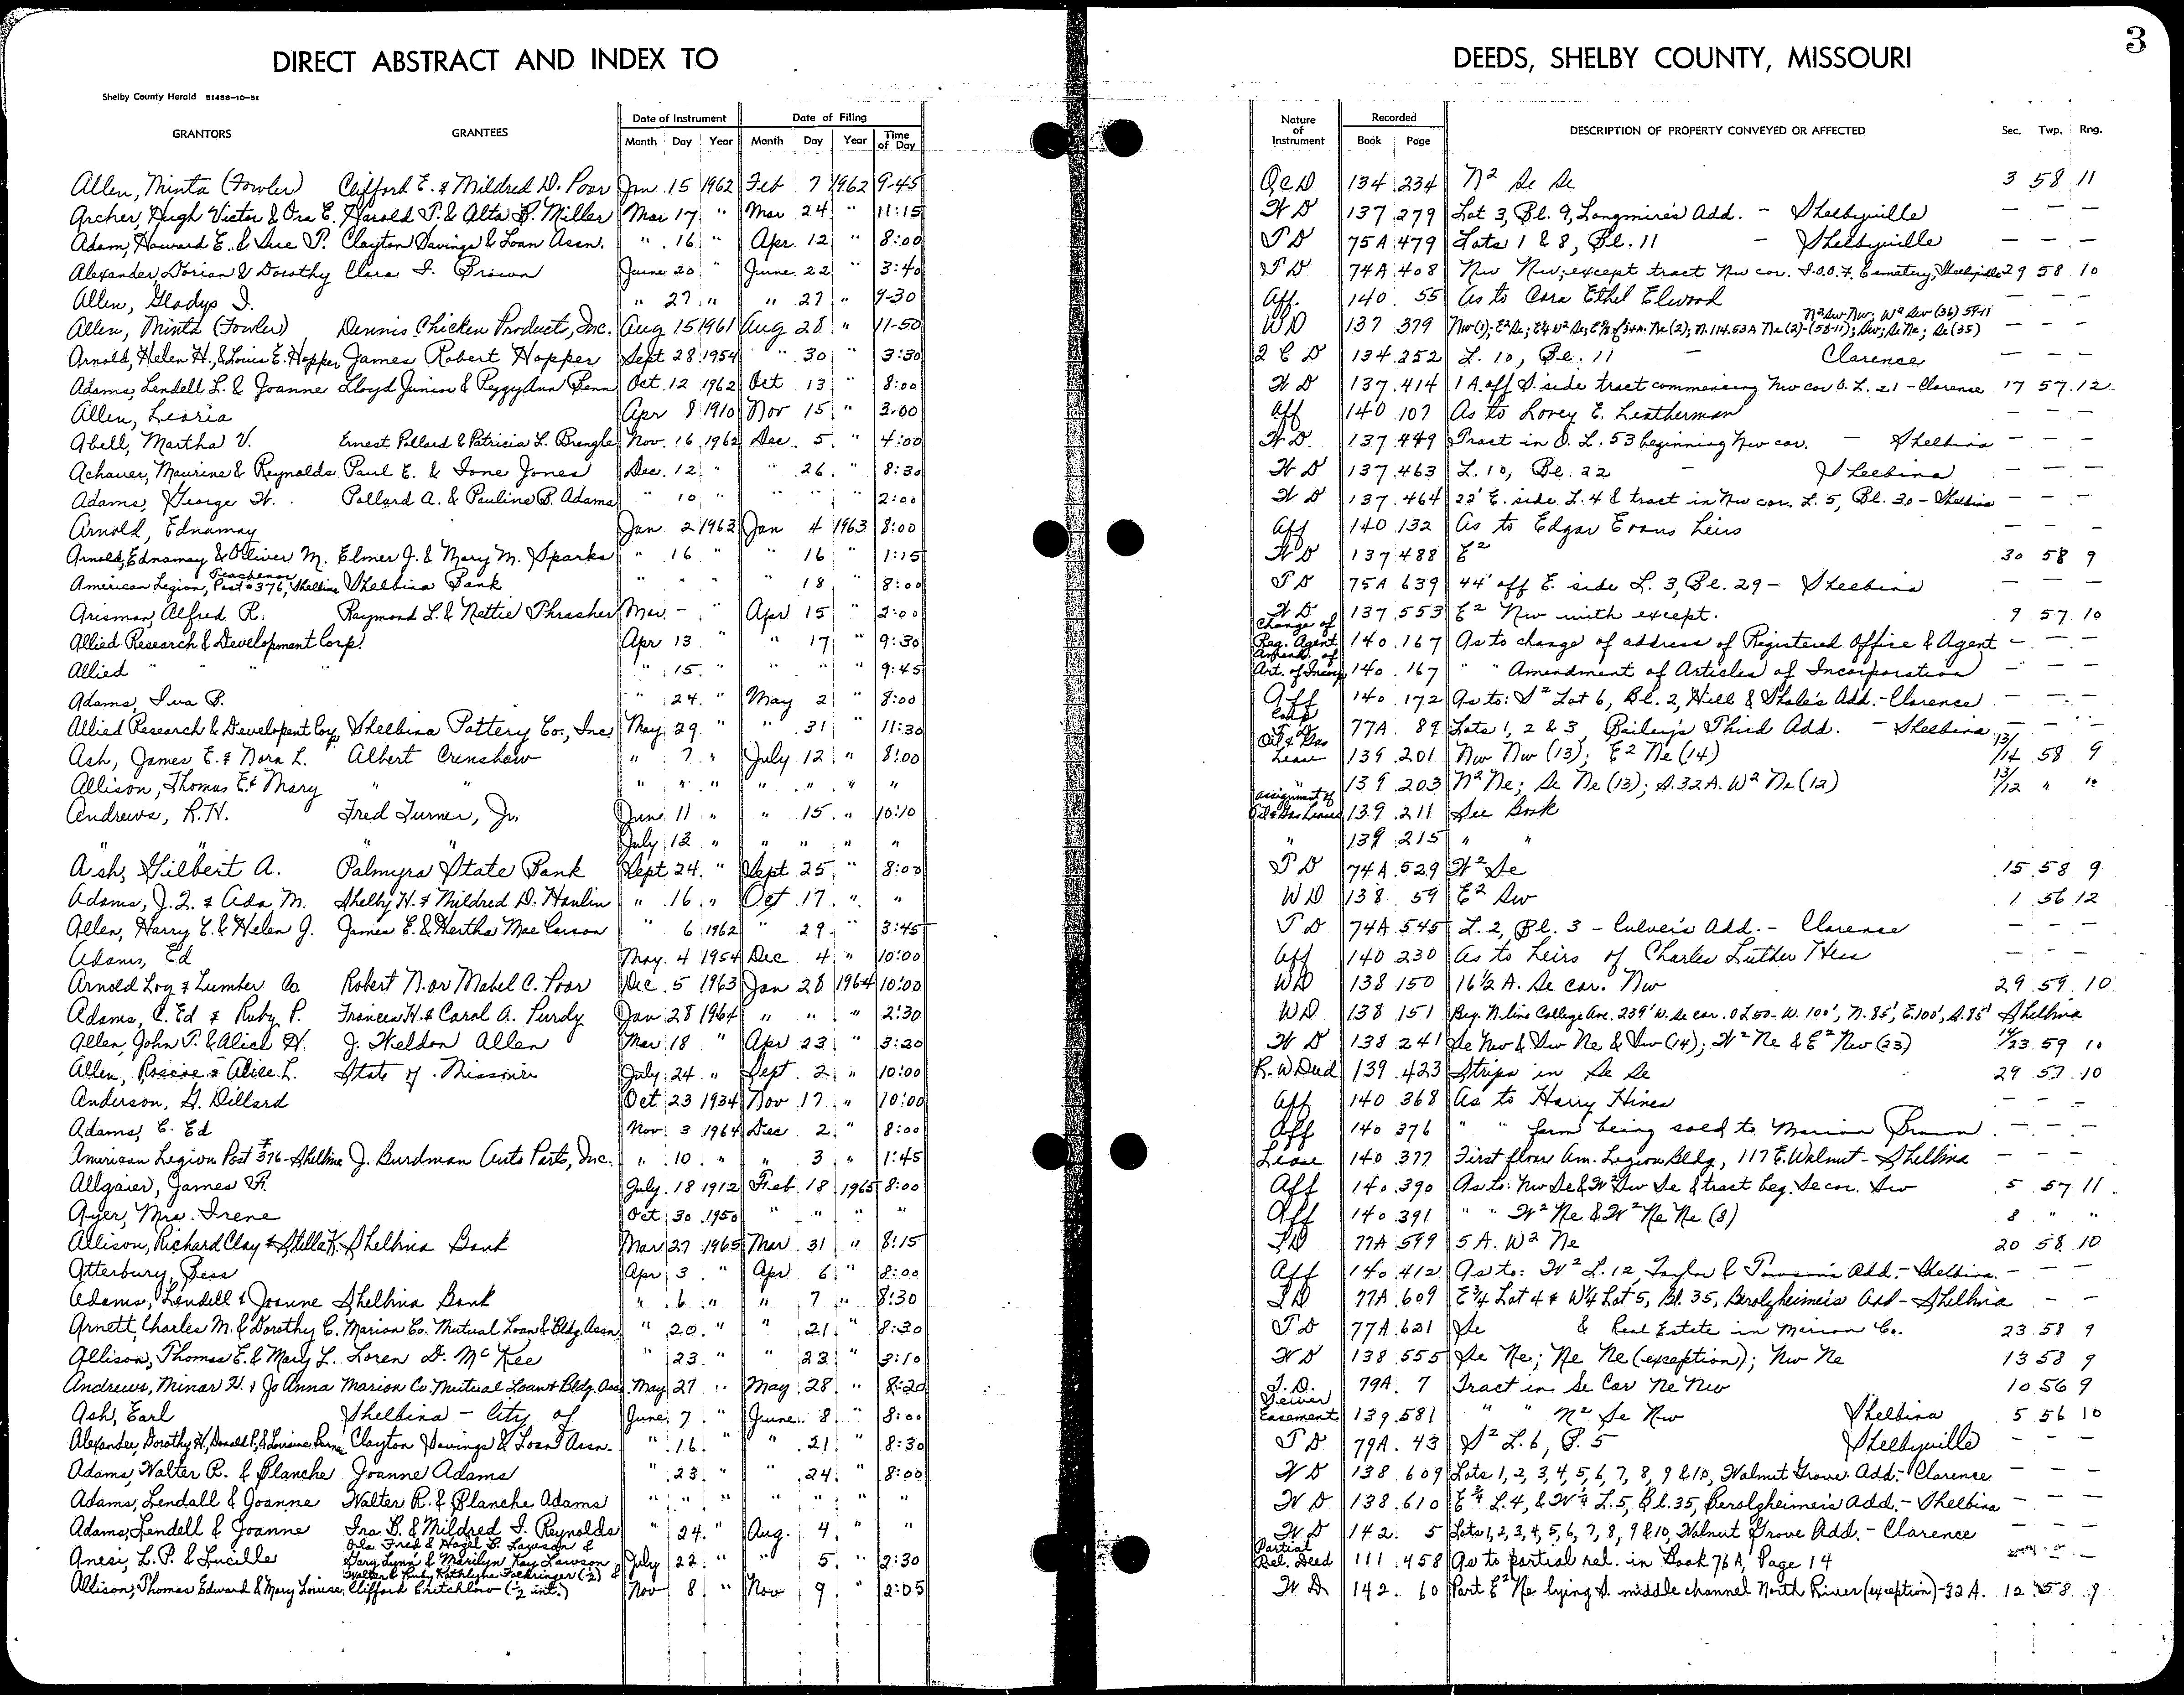 DIRECT ABSTRACT AND INDEX TO DEEDS, SHELBY COUNTY, MISSOURI 3
Shelby County Herald 51458-10-51
GRANTORS GRANTEES Date of Instrument Month Day Year Date of Filing Month Day Year Time of Day Nature of Instrument Recorded Book Page DESCRIPTION OF PROPERTY CONVEYED OR AFFECTED Sec. Twp. Rng.
Allen, Minta (Fowler) Clifford E. & Mildred D. Poor Jan 15 1962 Feb 7 1962 9-45 Q.C.D 134 234 N² Se Se 3 58 11
Archer, Hugh Victor & Ora E. Harold T. & Alta B. Miller Mar 17 " Mar 24 " 11:15 W D 137 279 Lot 3, Bl. 9, Longmire's Add. - Shelbyville — — —
Adam, Howard E. & Sue P. Clayton Savings & Loan Assn. " 16 " Apr 12 " 8:00 T D 75A 479 Lots 1 & 8, Bl. 11 - Shelbyville — — —
Alexander, Dorian & Dorothy Clara I. Brown June 20 " June 22 " 3:40 T D 74A 408 Nw Nw; except tract Nw cor. I.O.O.F. Cemetery, Shelbyville 29 58 10
Allen, Gladys I. " 27 " " 27 " 9-30 Aff. 140 55 As to Cora Ethel Elwood — — —
Allen, Minta (Fowler) Dennis Chicken Product, Inc. Aug 15 1961 Aug 28 " 11-50 WD 137 379 N²Sw Nw; W² Sw (36) 59-11
Arnold, Helen H., & Louis E. Hopper James Robert Hopper Sept 28 1954 " 30 " 3:30 Q C D 134 252 L. 10, Bl. 11 - Clarence — — —
Adams, Lendell L. & Joanne Lloyd Junior & Peggy Ann Penn Oct. 12 1962 Oct 13 " 8:00 W D 137 414 1 A. off S. side tract commencing Nw cor O. L. 21 - Clarence 17 57 12
Allen, Learia Apr 8 1910 Nov 15 " 3-00 Aff 140 107 As to Lovey E. Leatherman — — —
Abell, Martha V. Ernest Pollard & Patricia L. Brengle Nov. 16 1962 Dec. 5 " 4:00 W D. 137 449 Tract in O. L. 53 beginning Nw cor. - Shelbina — — —
Achauer, Maurine & Reynolds Paul E. & Ione Jones Dec. 12 " " 26 " 8:30 W D 137 463 L. 10, Bl. 22 - Shelbina — — —
Adams, George W. Pollard A. & Pauline B. Adams " 10 " " " " 2:00 W D 137 464 22' E. side L. 4 & tract in Nw cor. L. 5, Bl. 30 - Shelbina — — —
Arnold, Ednamay Jan. 2 1963 Jan 4 1963 8:00 Aff 140 132 As to Edgar Evans heirs — — —
Arnold, Ednamay & Oliver M. Elmer J. & Mary M. Sparks " 16 " " 16 " 1:15 W D 137 488 E² 30 58 9
American Legion, Peachenor Post #376, Shelbina Shelbina Bank " " " " 18 " 8:00 T D 75A 639 44' off E. side L. 3, Bl. 29 - Shelbina — — —
Arisman, Alfred R. Raymond L. & Nettie Thrasher Mar. - " Apr 15 " 2:00 W D 137 553 E² Nw with except. 9 57 10
Allied Research & Development Corp. Apr 13 " " 17 " 9:30 Change of Reg. Agent 140 167 As to change of address of Registered Office & Agent — — —
Allied " " " " 15 " " " " 9:45 Amend. of Art. of Incorp 140 167 " " Amendment of Articles of Incorporation — — —
Adams, Iva B. " 24 " May 2 " 8:00 Aff 140 172 As to: S² Lot 6, Bl. 2, Hill & Shale's Add. - Clarence — — —
Allied Research & Developent Corp. Shelbina Pottery Co., Inc. May 29 " " 31 " 11:30 Corp T. D. 77A 89 Lots 1, 2 & 3, Bailey's Third Add. - Shelbina — — —
Ash, James E. & Nora L. Albert Crenshaw " 7 " July 12 " 8:00 Oil & Gas Lease 139 201 Nw Nw (13); E² Ne (14) 13/14 58 9
Allison, Thomas E. & Mary " " " " " " " " " 139 203 N² Ne; Se Ne (13); S. 32 A. W² Ne (12) 13/12 " "
Andrews, R.H. Fred Turner, Jr. Jun 11 " " 15 " 10:10 Assignment of Oil & Gas Leases 139 211 See Book
" " July 12 " " " " " " 139 215 " "
Ash, Gilbert A. Palmyra State Bank Sept 24 " Sept 25 " 8:00 T D 74A 529 W² Se 15 58 9
Adams, J. Q. & Ada M. Shelby H. & Mildred D. Hanlin " 16 " Oct 17 " " WD 138 59 E² Sw 1 56 12
Allen, Harry E. & Helen J. James E. & Hertha Mae Carson " 6 1962 " 29 " 3:45 T D 74A 545 L. 2, Bl. 3 - Culver's Add. - Clarence — — —
Adams, Ed May 4 1954 Dec 4 " 10:00 Aff 140 230 As to heirs of Charles Luther Hess — — —
Arnold Log & Lumber Co. Robert N. or Mabel C. Poor Dec. 5 1963 Jan 28 1964 10:00 WD 138 150 16½ A. Se cor. Nw 29 59 10
Adams, C. Ed & Ruby P. Frances H. & Carol A. Purdy Jan 28 1964 " " " 2:30 WD 138 151 Beg. N. line College Ave. 239' W. Se cor. O L 50 - W. 100', N. 85', E. 100', S. 85' Shelbina
Allen, John T. & Alice H. J. Weldon Allen Mar 18 " Apr 23 " 3:20 W D 138 241 Se Nw & Sw Ne & Sw (14); W² Ne & E² Nw (23) 14/23 59 10
Allen, Roscoe & Alice L. State of Missouri July 24 " Sept. 2 " 10:00 R. W Deed 139 423 Strips in Se Se 29 57 10
Anderson, G. Dillard Oct 23 1934 Nov 17 " 10:00 Aff 140 368 As to Harry Hines — — —
Adams, C. Ed Nov. 3 1964 Dec 2 " 8:00 Aff 140 376 " " farm being sold to Marion Brown — — —
American Legion Post #376 - Shelbina J. Burdman Auto Parts, Inc. " 10 " " 3 " 1:45 Lease 140 377 First floor Am. Legion Bldg, 117 E. Walnut - Shelbina — — —
Allgaier, James F. July 18 1912 Feb 18 1965 8:00 Aff 140 390 As to: Nw Se & W² Sw Se & tract beg. Se cor. Sw 5 57 11
Ayer, Mrs. Irene Oct 30 1950 " " " " Aff 140 391 " " W² Ne & W² Ne Ne (8) 8 " "
Allison, Richard Clay & Stella K. Shelbina Bank Mar 27 1965 Mar 31 " 8:15 T D 77A 599 5 A. W² Ne 20 58 10
Atterbury, Bess Apr 3 " Apr 6 " 8:00 Aff 140 412 As to: W² L. 12, Taylor & Add. - Shelbina — — —
Adams, Lendell & Joanne Shelbina Bank " 6 " " 7 " 8:30 T D 77A 609 E¾ Lot 4 & W¼ Lot 5, Bl. 35, Berolzheimer's Add - Shelbina — —
Arnett, Charles M. & Dorothy C. Marion Co. Mutual Loan & Bldg. Assn. " 20 " " 21 " 8:30 T D 77A 621 Se & Real Estate in Marion Co. 23 58 9
Allison, Thomas E. & Mary L. Loren D. McKee " 23 " " 23 " 3:10 W D 138 555 Se Ne; Ne Ne (exception); Nw Ne 13 58 9
Andrews, Minar H. & Jo Anna Marion Co. Mutual Loan & Bldg. Assn. May 27 " May 28 " 8:20 T. D. 79A 7 Tract in Se Cor Ne Nw 10 56 9
Ash, Earl Shelbina - City of June 7 " June 8 " 8:00 Sewer Easement 139 581 " " N² Se Nw Shelbina 5 56 10
Alexander, Dorothy H., Donald P., & Lorraine Clayton Savings & Loan Assn. " 16 " " 21 " 8:30 T D 79A 43 S² L. 6, B. 5 Shelbyville — — —
Adams, Walter R. & Blanche Joanne Adams " 23 " " 24 " 8:00 W D 138 609 Lots 1, 2, 3, 4, 5, 6, 7, 8, 9 & 10, Walnut Grove Add. - Clarence — — —
Adams, Lendall & Joanne Walter R. & Blanche Adams " " " " " " " W D 138 610 E¾ L. 4, & W¼ L. 5, Bl. 35, Berolzheimer's Add. - Shelbina — — —
Adams, Lendell & Joanne Ira B. & Mildred I. Reynolds " 24 " Aug. 4 " " W D 142 5 Lots 1, 2, 3, 4, 5, 6, 7, 8, 9 & 10, Walnut Grove Add. - Clarence — — —
Anesi, L. P. & Lucille Ola Fred & Hazel B. Lawson & Gary Lynn & Marilyn Kay Lawson July 22 " " 5 " 2:30 Partial Rel. Deed 111 458 As to partial rel. in Book 76A, Page 14
Allison, Thomas Edward & Mary Louise Clifford Critchlow (½ int.) Nov 8 " Nov 9 " 2:05 W D 142 60 Part E² Ne lying S. middle channel North River (exception) - 32 A. 12 58 9